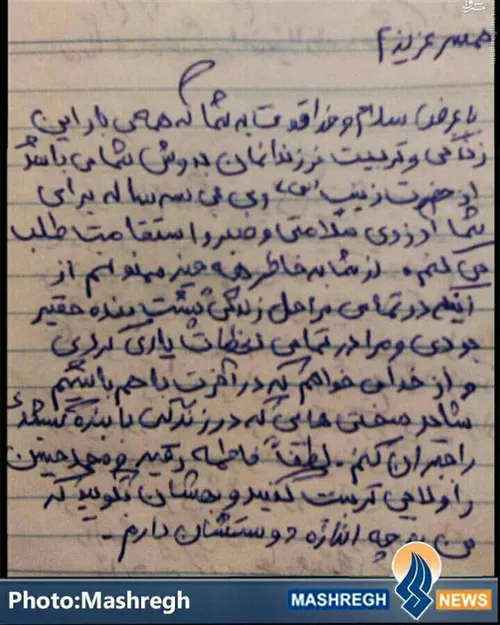 همسر عزیزم
با عرض سلام و خداقوت به شما که همه‌ی بار این
زندگی و تربیت فرزندانمان به دوش شما می باشد
از حضرت زینب (س) و بی بی سه ساله برای
شما آرزوی سلامتی و صبر و استقامت طلب
می کنم. از شما به خاطر همه چیز ممنونم از
اینکه در تمامی مراحل زندگی پشت بنده حقیر
بودی و مرا در تمامی لحظات یاری کردی
و از خدا می خواهم که در آخرت با هم باشیم
سختی هایی که در زندگی با بنده کشید
را جبران کنم. لطفاً فاطمه رقیه و محمدحسین
را ولایی تربیت کنید و بهشان بگویید که
من چه اندازه دوستشان دارم.
Photo:Mashregh
MASHREGH NEWS